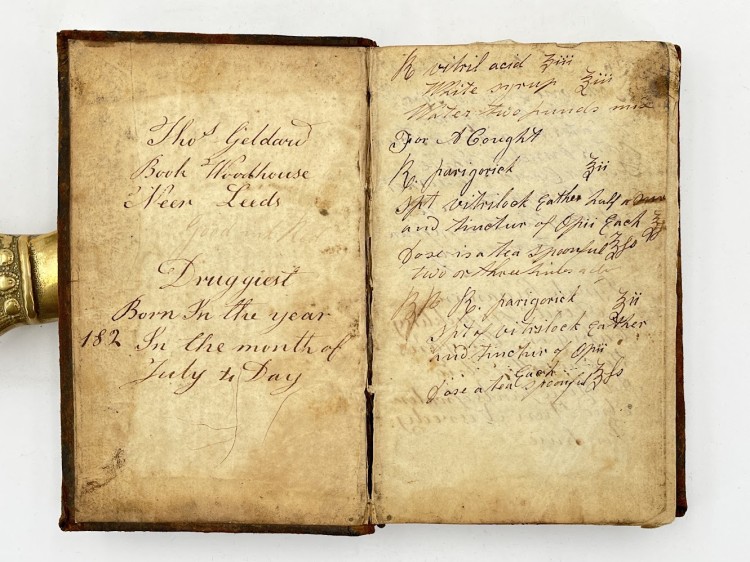 Thos Geldard
Book Woodhouse
Neer Leeds
Druggiest
Born In the year
182 In the month of
July 4 Day
R vitril acid ʒiii
White syrup ʒiii
Water two punds mix
For A Cought
R. parigorick ʒii
spt vitrilock Eather half a
and tinctur of Opii Each ʒ
Dose is a tea spoonful ʒfs
two or three times a day
R. parigorick ʒii
Spts vitrilock Eather
and tinctur of Opii
Each
Dose a tea spoonful ʒfs